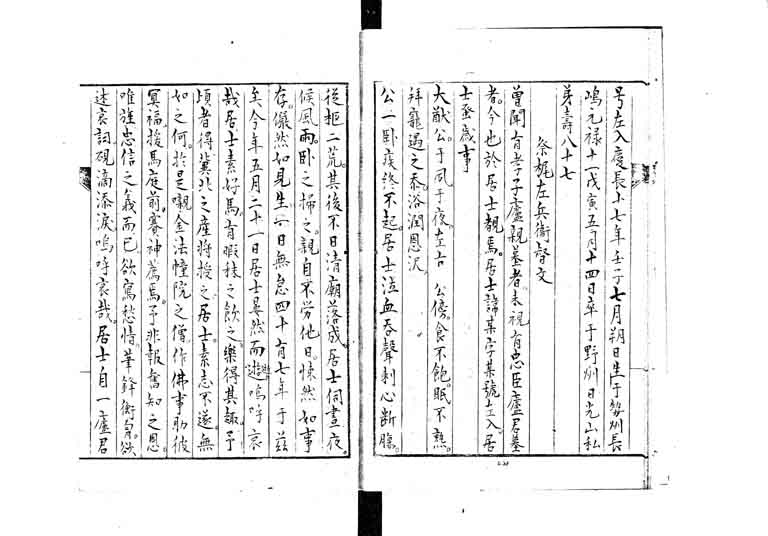 号左入慶長十七年壬子七月朔日生于勢州長
嶋元禄十一戊寅五月十四日卒于野州日光山私
茅壽八十七
祭梶左兵衛督文
曽聞有孝子廬親墓者未視有忠臣廬君墓
者今也於居士覩焉居士諱某字某號士入居
士登歳事
大猷公于夙于夜左右　公傍食不飽眠不熟
拜寵遇之泰浴潤恩沢
公一卧疾終不起居士泣血吞聲刺心断膓
従柩二荒其後不日清廟落成居士伺晝夜
候風雨卧之掃之親自不労他日悚然如事
存儼然如見生一日無怠四十有七年于茲
矣今年五月二十一日居士晏然而逝嗚呼哀
哉居士素好馬有暇秣之飲之樂得其趣予
頃者得冀北之産将授之居士素志不遂無
如之何於是嚫金法幢院之僧作佛事助彼
冥福援馬庭前賽神薦馬予非報舊知之恩
唯旌忠信之義而已欲寫愁情筆鋒衝胷欲
述哀詞硯滴添淚嗚呼哀哉居士自一廬君